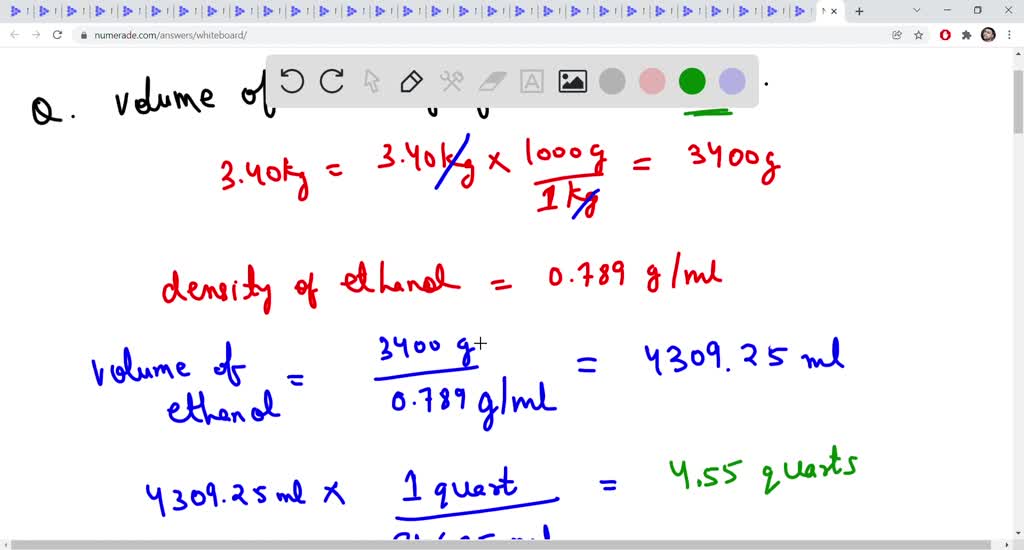 numerade.com/answers/whiteboard/
Q. volume of
3.40kg = 3.40kg × 1000g / 1 kg = 3400g
density of ethanol = 0.789 g/ml
volume of ethanol = 3400 g / 0.789 g/ml = 4309.25 ml
4309.25 ml × 1 quart = 4.55 quarts